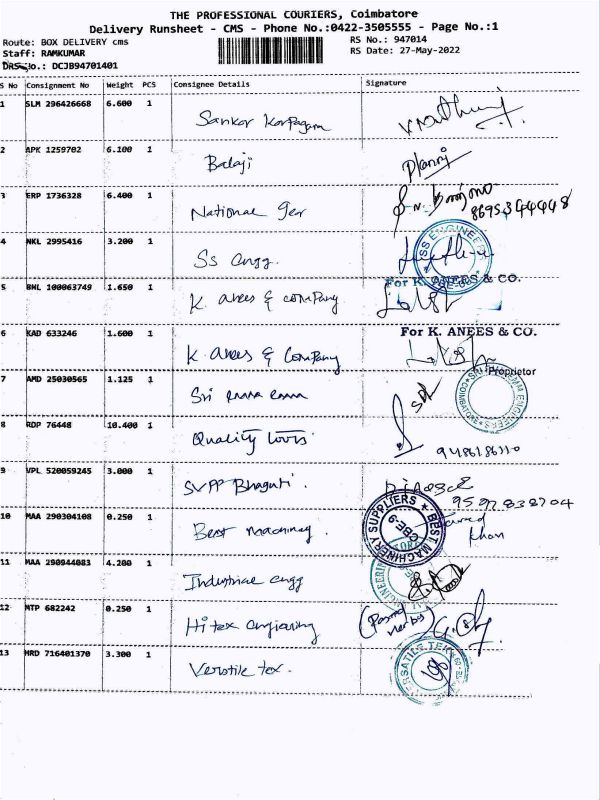 THE PROFESSIONAL COURIERS, Coimbatore
Delivery Runsheet - CMS - Phone No.:0422-3505555 - Page No.:1
Route: BOX DELIVERY cms
RS No.: 947014
Staff: RAMKUMAR
RS Date: 27-May-2022
DRS No.: DCJB94701401
S No Consignment No Weight PCS Consignee Details Signature
1 SLM 296426668 6.600 1 Sankar Karpagam
2 APK 1259702 6.100 1 Balaji
3 ERP 1736328 6.400 1 National Ger
8695344448
4 NKL 2995416 3.200 1 Ss engg.
SS ENGINEERS
For K. ANEES & CO.
5 BNL 100063749 1.650 1 K. anees & company
For K. ANEES & CO.
6 KAD 633246 1.600 1 K. Anees & Company
Proprietor
7 AMD 25030565 1.125 1 Sri
8 RDP 76448 10.400 1 Quality tools
9486186310
9 VPL 520059245 3.000 1 SVPP Bhagati.
10 MAA 290304108 0.250 1 Best machinery.
khan
BEST MACHINERY SUPPLIERS CBE-9
11 MAA 290944083 4.200 1 Industrial engg
12 MTP 682242 0.250 1 Hitex engraving
13 MRD 716401370 3.300 1 Versatile tex.